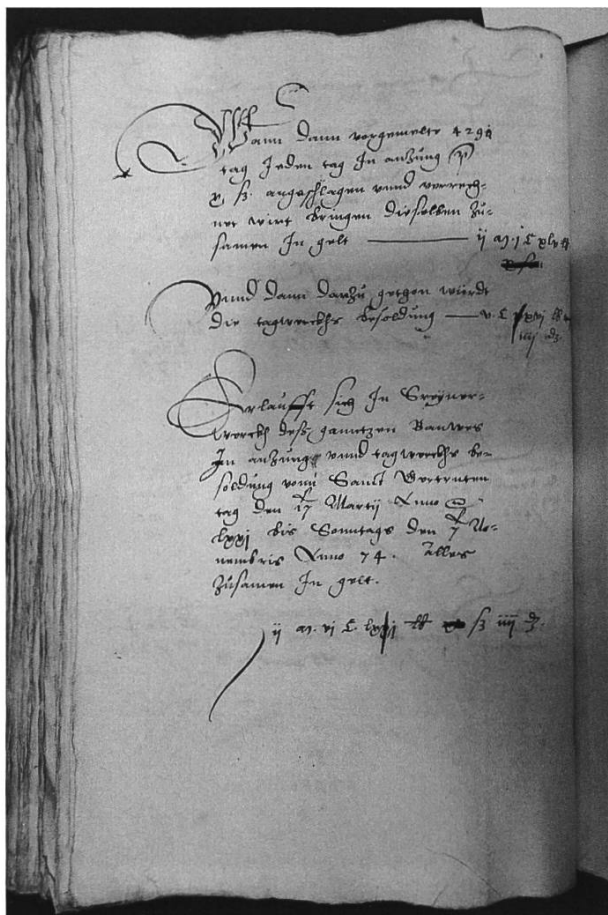 Wann dann vorgemelte 4290
tag Jeden tag In anzung P
x ß. angeschlagen vnnd verrech-
net wirt bringen dieselben zu-
samen In gelt —— ij M. j C xlv lb
Vnnd dann darzu gethon würdt
die tagwerckhs besoldung — v. C xxvj lb
iiij d.
Erlaufft sich In Steyner-
werckh deß ganntzen Bauwes
In anzung vnnd tagwerckhs be-
soldung vonn Sanct Gertruten
tag den 17 Martij Anno
lxxj bis Sonntags den 7 No-
uembris Anno 74. Alles
zusamen In gelt.
ij M. vj C. lxxj lb ß iiij d.